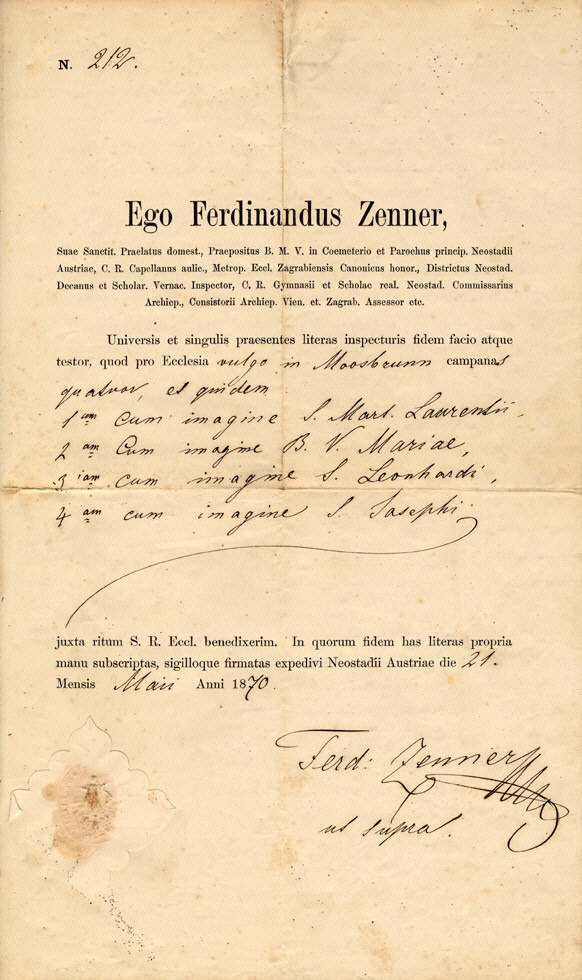 N. 212.
Ego Ferdinandus Zenner,
Suae Sanctit. Praelatus domest., Praepositus B. M. V. in Coemeterio et Parochus princip. Neostadii
Austriae, C. R. Capellanus aulic., Metrop. Eccl. Zagrabiensis Canonicus honor., Districtus Neostad.
Decanus et Scholar. Vernac. Inspector, C. R. Gymnasii et Scholae real. Neostad. Commissarius
Archiep., Consistorii Archiep. Vien. et. Zagrab. Assessor etc.
Universis et singulis praesentes literas inspecturis fidem facio atque
testor, quod pro Ecclesia vulgo in Moosbrunn campanas
quatuor, et quidem
1 am cum imagine S. Mart. Laurentii,
2 am Cum imagine B. V. Mariae,
3 iam cum imagine S. Leonhardi,
4 am cum imagine S. Josephi
juxta ritum S. R. Eccl. benedixerim. In quorum fidem has literas propria
manu subscriptas, sigilloque firmatas expedivi Neostadii Austriae die 21.
Mensis Maii Anni 1870.
Ferd: Zenner
ut supra.